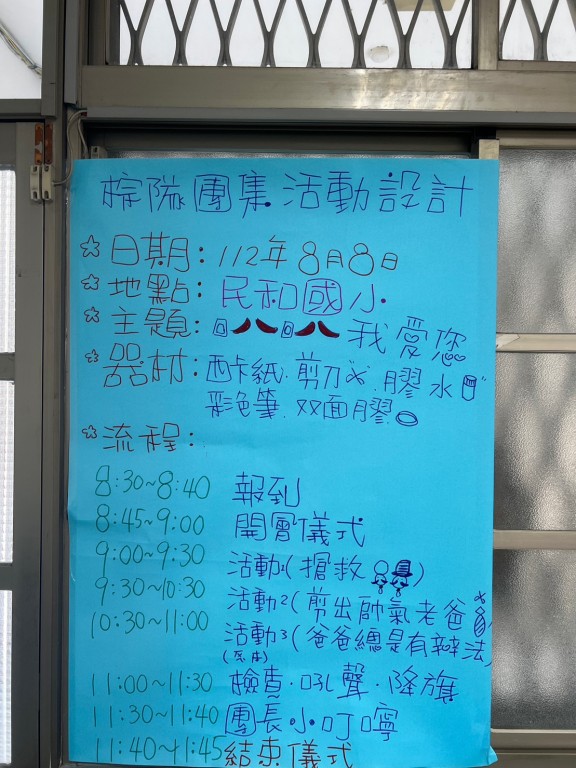 棕隊團集活動設計
☆日期：112年8月8日
☆地點：民和國小
☆主題：回八回八我愛您
☆器材：西卡紙．剪刀．膠水
彩色筆．双面膠
☆流程：
8:30~8:40 報到
8:45~9:00 開會儀式
9:00~9:30 活動1(搶救)
9:30~10:30 活動2(剪出帥氣老爸
10:30~11:00 活動3(爸爸總是有辦法)
11:00~11:30 檢查．吼聲．降旗
11:30~11:40 團長小叮嚀
11:40~11:45 結束儀式